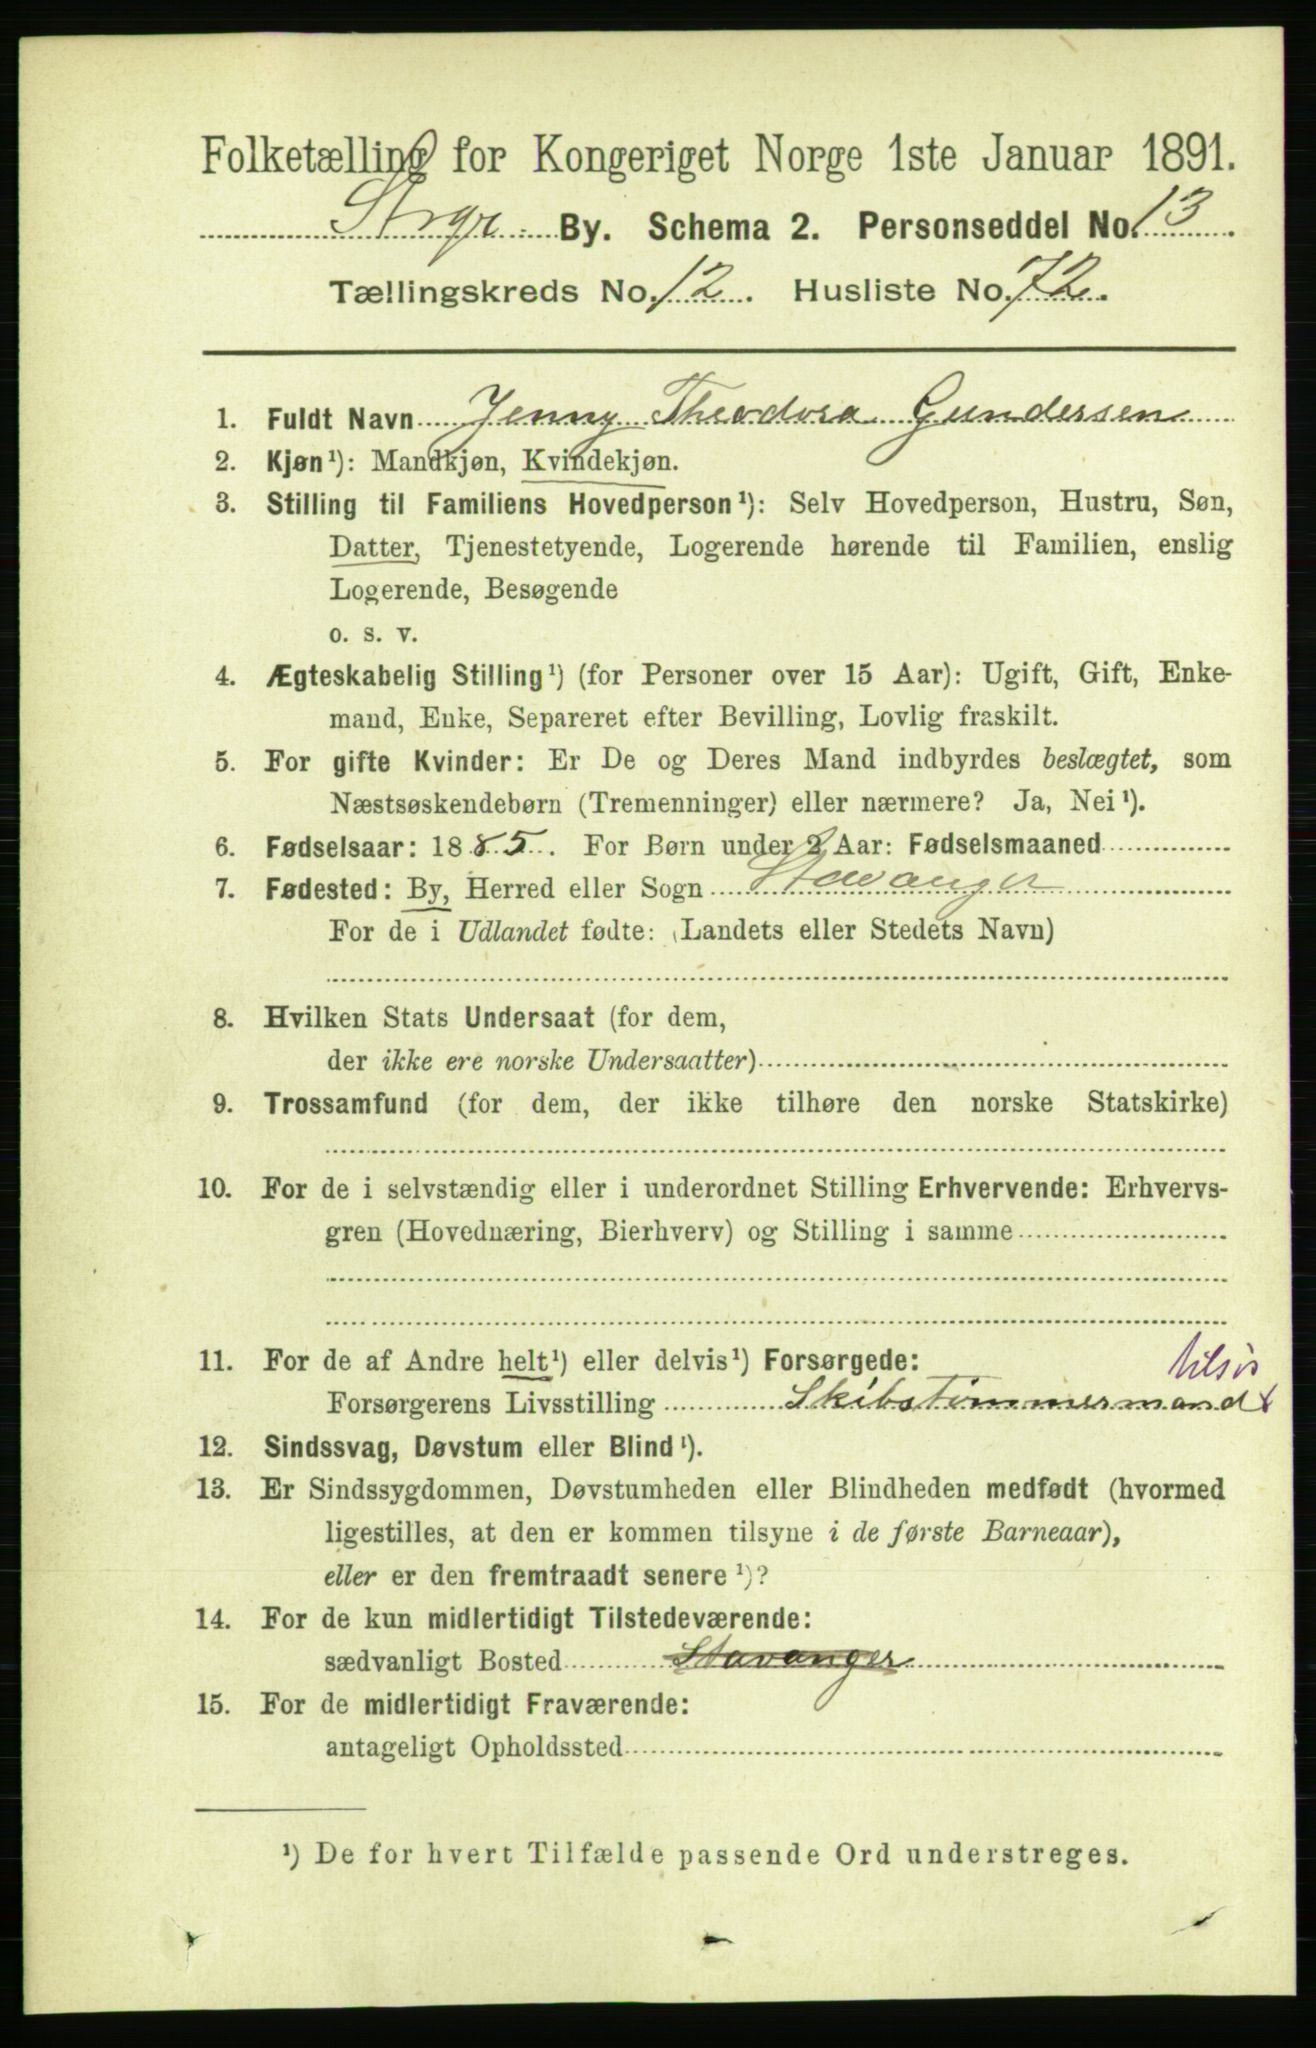 Folketælling for Kongeriget Norge 1ste Januar 1891.
Stvgr. By. Schema 2. Personseddel No. 13.
Tællingskreds No. 12. Husliste No. 72.
1. Fuldt Navn Jenny Theodora Gundersen
2. Kjøn¹): Mandkjøn, Kvindekjøn.
3. Stilling til Familiens Hovedperson¹): Selv Hovedperson, Hustru, Søn,
Datter, Tjenestetyende, Logerende hørende til Familien, enslig
Logerende, Besøgende
o. s. v.
4. Ægteskabelig Stilling¹) (for Personer over 15 Aar): Ugift, Gift, Enke-
mand, Enke, Separeret efter Bevilling, Lovlig fraskilt.
5. For gifte Kvinder: Er De og Deres Mand indbyrdes beslægtet, som
Næstsøskendebørn (Tremenninger) eller nærmere? Ja, Nei¹).
6. Fødselsaar: 1885. For Børn under 2 Aar: Fødselsmaaned
7. Fødested: By, Herred eller Sogn Stavanger
For de i Udlandet fødte: (Landets eller Stedets Navn)
8. Hvilken Stats Undersaat (for dem,
der ikke ere norske Undersaatter)
9. Trossamfund (for dem, der ikke tilhøre den norske Statskirke)
10. For de i selvstændig eller i underordnet Stilling Erhvervende: Erhvervs-
gren (Hovednæring, Bierhverv) og Stilling i samme
11. For de af Andre helt¹) eller delvis¹) Forsørgede:
Forsørgerens Livsstilling Skibstømmermand
12. Sindssvag, Døvstum eller Blind¹).
13. Er Sindssygdommen, Døvstumheden eller Blindheden medfødt (hvormed
ligestilles, at den er kommen tilsyne i de første Barneaar),
eller er den fremtraadt senere¹)?
14. For de kun midlertidigt Tilstedeværende:
sædvanligt Bosted Stavanger
15. For de midlertidigt Fraværende:
antageligt Opholdssted
¹) De for hvert Tilfælde passende Ord understreges.